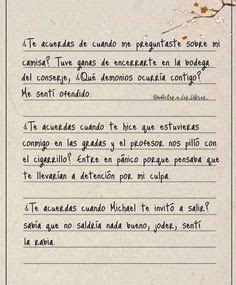 ¿Te acuerdas de cuando me preguntaste sobre mi
camisa? Tuve ganas de encerrarte en la bodega
del conserje, ¿Qué demonios ocurría contigo?
Me sentí ofendido.
¿Te acuerdas cuando te hice que estuvieras
conmigo en las gradas y el profesor nos pilló con
el cigarrillo? Entre en pánico porque pensaba que
te llevarían a detención por mi culpa.
¿Te acuerdas cuando Michael te invitó a salir?
sabía que no saldría nada bueno, joder, sentí
la rabia.